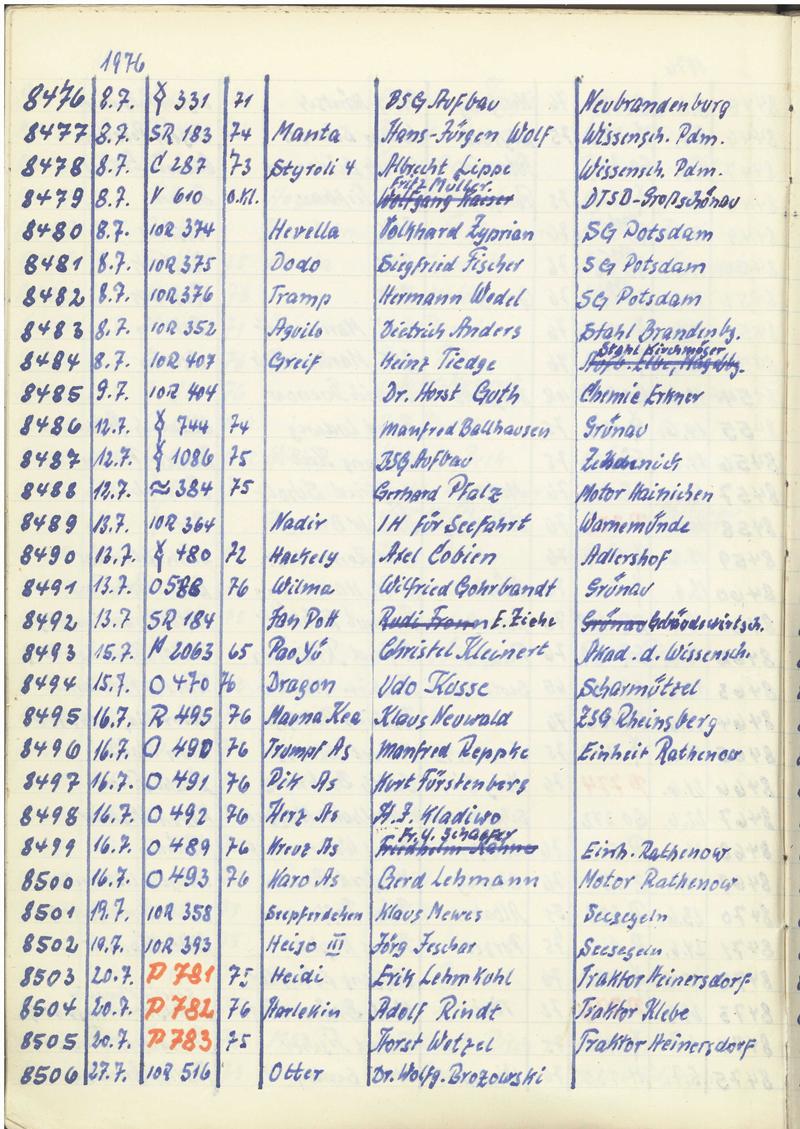 1976
8476 8.7. 331 71 BSG Aufbau Neubrandenburg
8477 8.7. SR 183 74 Manta Hans-Jürgen Wolf Wissensch. Pdm.
8478 8.7. C 287 73 Styroli 4 Albrecht Lippe Wissensch. Pdm.
8479 8.7. V 610 o.Kl. Fritz Müller. Wolfgang DTSD-Großschönau
8480 8.7. 10R 374 Hevella Volkhard Zyprian SG Potsdam
8481 8.7. 10R 375 Dodo Siegfried Fischer SG Potsdam
8482 8.7. 10R 376 Tramp Hermann Wedel SG Potsdam
8483 8.7. 10R 352 Aquilo Dietrich Anders Stahl Brandenbg.
8484 8.7. 10R 407 Greif Heinz Tiedge Stahl Kirchmöser
8485 9.7. 10R 404 Dr. Horst Guth Chemie Erkner
8486 12.7. 744 74 Manfred Ballhausen Grünau
8487 12.7. 1086 75 BSG Aufbau Zehdenick
8488 12.7. 384 75 Gerhard Pfalz Motor Hainichen
8489 13.7. 10R 364 Nadir IH für Seefahrt Warnemünde
8490 13.7. 480 72 Hackely Axel Cobien Adlershof
8491 13.7. O 588 76 Wilma Wilfried Gohrbandt Grünau
8492 13.7 SR 184 Jan Pott Rudi E. Ziehe Grünau Gebäudewirtsch.
8493 15.7. 2063 65 Pao Yü Christel Kleinert Akad. d. Wissensch.
8494 15.7. O 470 76 Dragon Udo Kosse Scharmützel
8495 16.7. R 495 76 Mauna Kea Klaus Neuwald ZSG Rheinsberg
8496 16.7. O 490 76 Trumpf As Manfred Reppke Einheit Rathenow
8497 16.7. O 491 76 Pik As Kurt Fürstenberg
8498 16.7. O 492 76 Herz As H.J. Kladiwo
8499 16.7. O 489 76 Kreuz As Fr. Y. Schaefer Friedhelm Einh. Rathenow
8500 16.7. O 493 76 Karo As Gerd Lehmann Motor Rathenow
8501 19.7. 10R 358 Seepferdchen Klaus Mewes Seesegeln
8502 19.7. 10R 393 Heiso III Jörg Jeschar Seesegeln
8503 20.7. P 781 75 Heidi Erik Lehmkuhl Traktor Heinersdorf
8504 20.7. P 782 76 Harlekin Adolf Rindt Traktor Klebe
8505 20.7. P 783 75 Horst Wetzel Traktor Heinersdorf
8506 27.7. 10R 516 Otter Dr. Wolfg. Brozowski